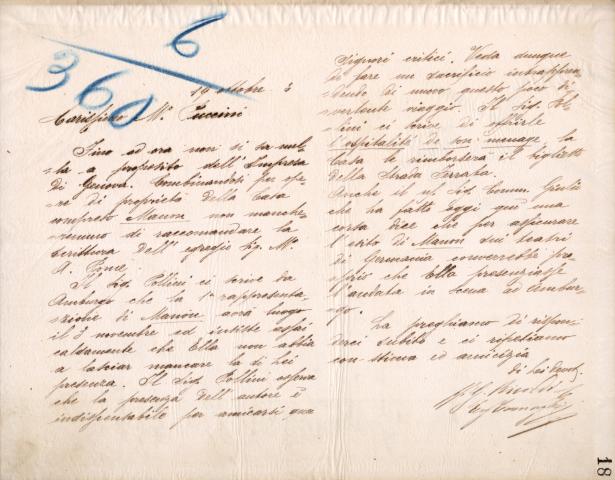 6
360
19 ottobre 3
Carissimo Mo. Puccini
Sino ad ora non si sa nul-
la a proposito dell'Impresa
di Genova. Combinandosi per ope-
re di proprietà della Casa
compreso Manon non manche-
remmo di raccomandare la
scrittura dell'egregio Sig. Mo.
A. Pomé.
Il Sig. Pollini ci scrive da
Amburgo che la 1a rappresenta-
zione di Manon avrà luogo
il 7 novembre ed insiste assai
caldamente che Ella non abbia
a lasciar mancare la di Lei
presenza. Il Sig. Pollini asserisce
che la presenza dell'autore è
indispensabile per amicarsi qua
Signori critici. Veda dunque
di fare un sacrificio intrapren-
dendo di nuovo questo poco di-
vertente viaggio. Il Sig. Pol-
lini ci scrive di offrirle
l'ospitalità di son menage, la
Casa le rimborserà il biglietto
della Strada Ferrata.
Anche il nl. Sig. Comm. Giulio
che ha fatto oggi qui una
corsa dice che per assicurare
l'esito di Manon sui teatri
di Germania converrebbe pro-
prio che Ella presenziasse
l'andata in scena ad Ambur-
go.
La preghiamo di rispon-
derci subito e ci ripetiamo
con stima ed amicizia
di Lei Devot.
18